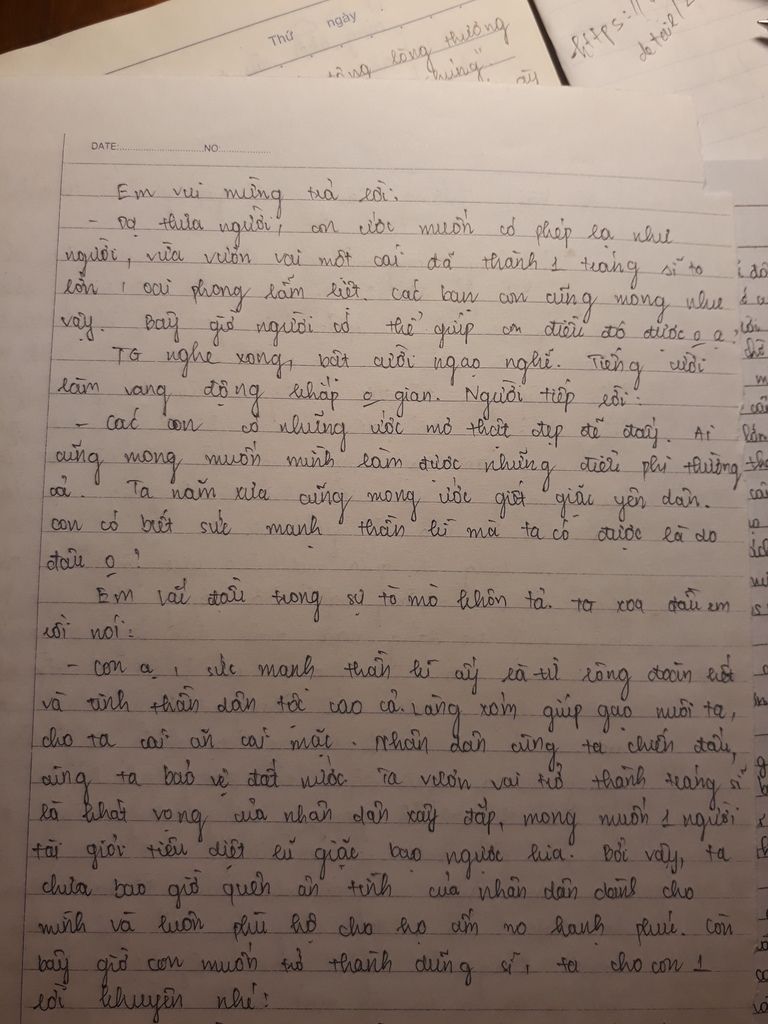 Thứ ngày
lòng thương
https://
detail/2
DATE: NO:
Em vui mừng trả lời:
- Dạ thưa người, con ước muốn có phép lạ như
người, vừa vươn vai một cái đã thành 1 tráng sĩ to
lớn, oai phong lẫm liệt. Các bạn con cũng mong như
vậy. Bây giờ người có thể giúp con điều đó được o ạ?
TG nghe xong, bật cười ngạo nghễ. Tiếng cười
làm vang động khắp o gian. Người tiếp lời:
- Các con có những ước mơ thật đẹp đẽ đấy. Ai
cũng mong muốn mình làm được những điều phi thường
cả. Ta năm xưa cũng mong ước giết giặc yên dân.
con có biết sức mạnh thần kì mà ta có được là do
đâu o?
Em lắc đầu trong sự tò mò khôn tả. TG xoa đầu em
rồi nói:
- Con ạ, sức mạnh thần kì ấy là từ lòng đoàn kết
và tinh thần dân tộc cao cả. Làng xóm giúp gạo nuôi ta,
cho ta cái ăn cái mặc. Nhân dân cùng ta chiến đấu,
cùng ta bảo vệ đất nước. Ta vươn vai trở thành tráng sĩ
là khát vọng của nhân dân xây đắp, mong muốn 1 người
tài giỏi tiêu diệt lũ giặc bạo ngược kia. Bởi vậy, ta
chưa bao giờ quên ân tình của nhân dân dành cho
mình và luôn phù hộ cho họ ấm no hạnh phúc. Còn
bây giờ con muốn trở thành dũng sĩ, ta cho con 1
lời khuyên nhé: